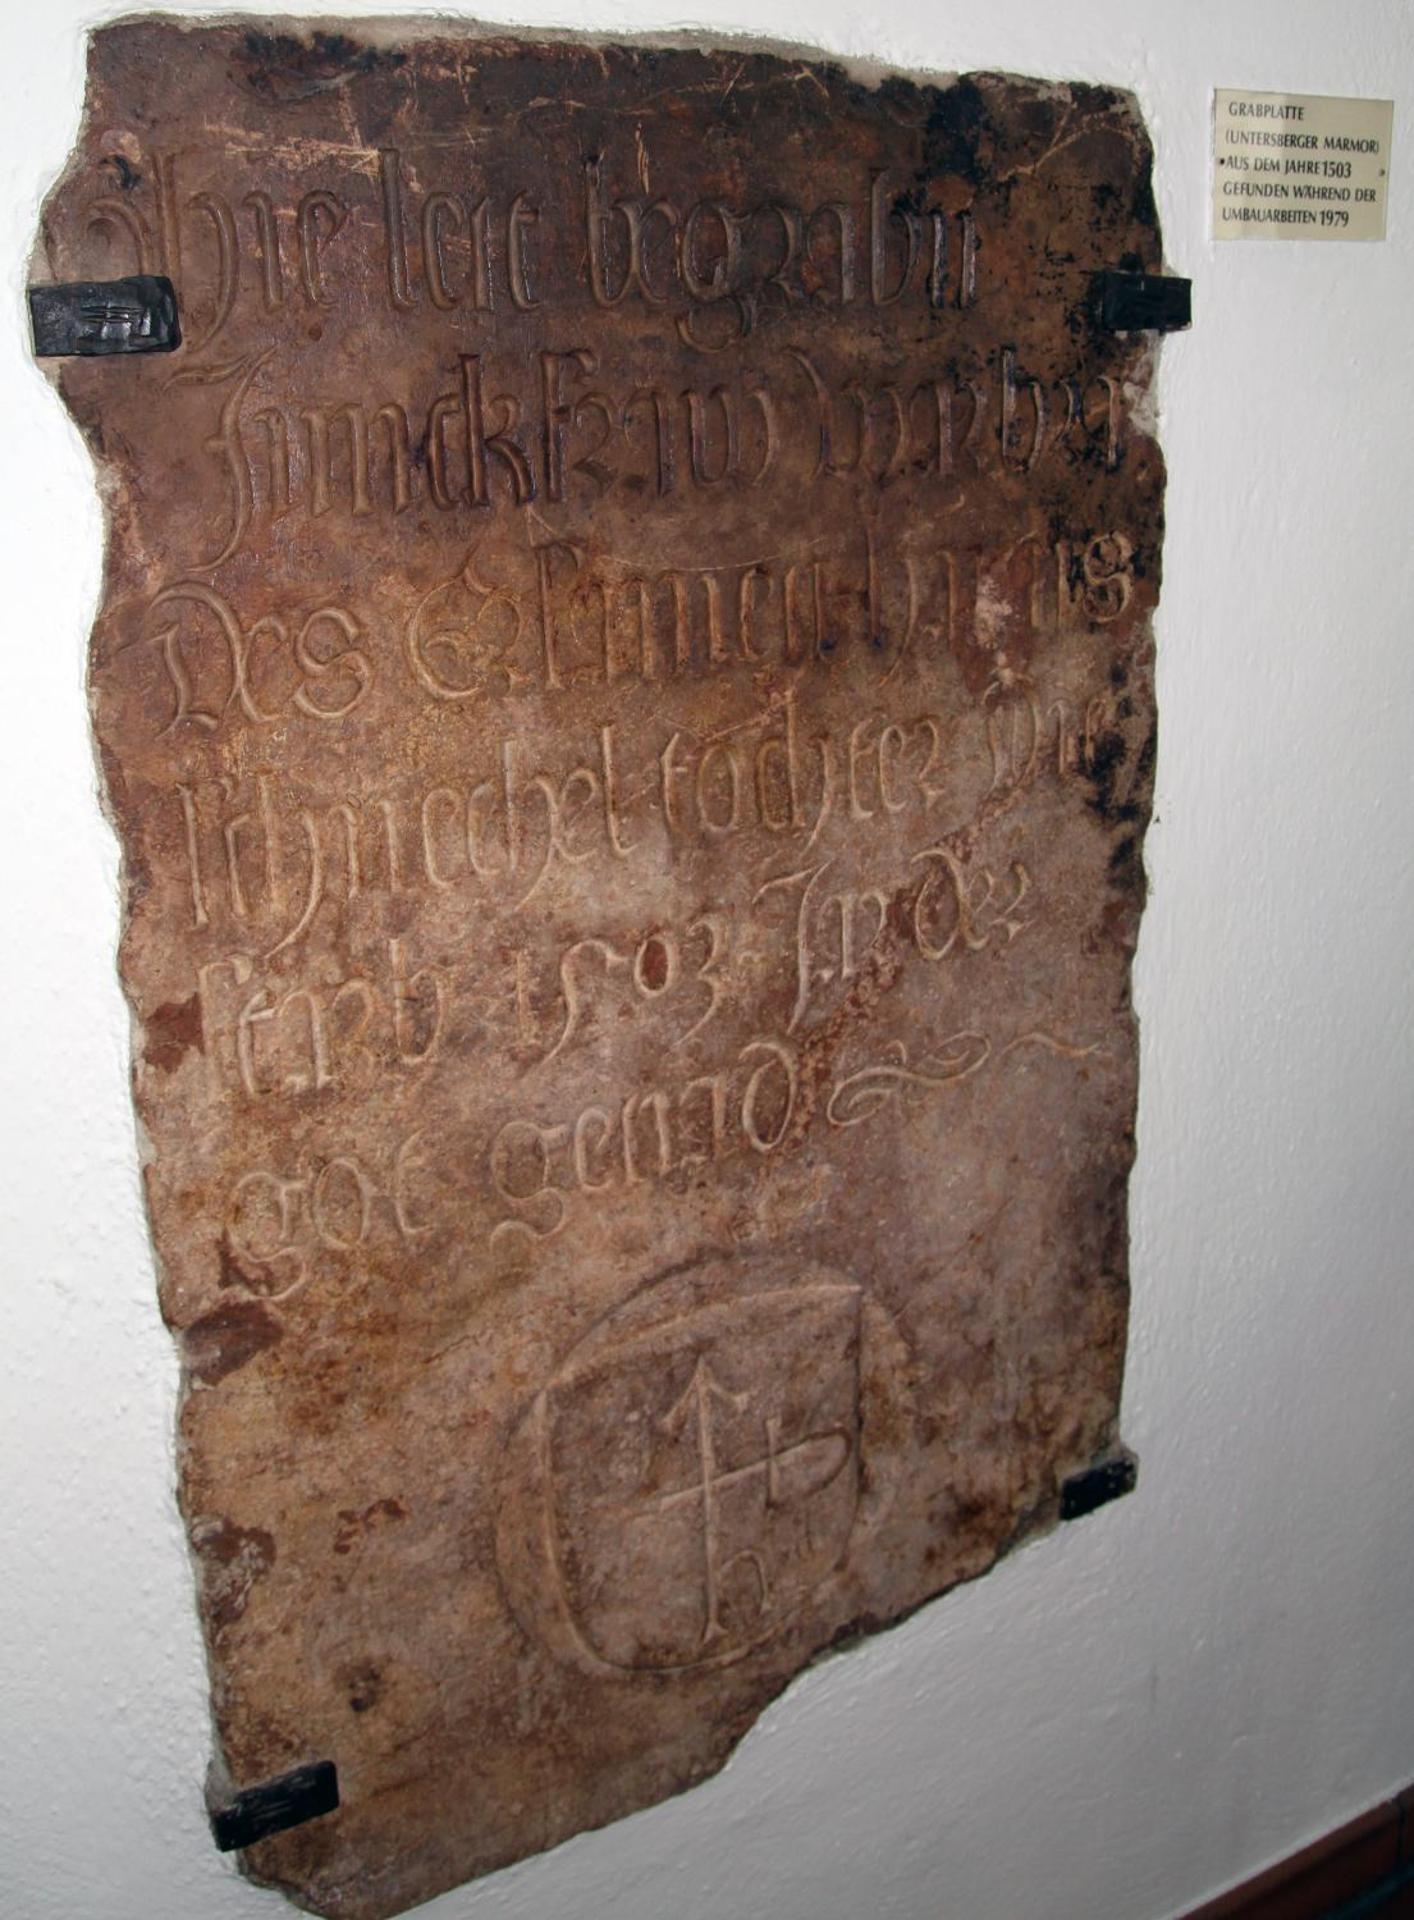 Hie leit begrabn
Junckfraw barbra
des Clement
schmechel tochter die
starb 1503 · Jn der
got genad
h
GRABPLATTE
(UNTERSBERGER MARMOR)
AUS DEM JAHRE 1503
GEFUNDEN WÄHREND DER
UMBAUARBEITEN 1979